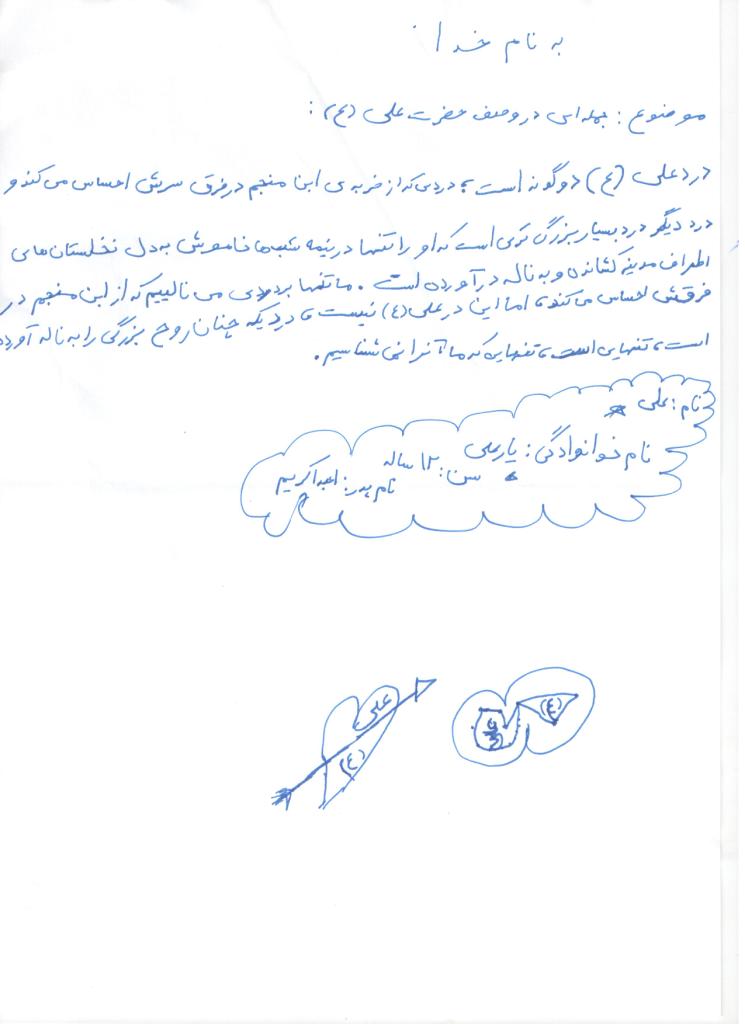 به نام خدا
موضوع : جمله ای در وصف حضرت علی (ع) :
درد علی (ع) دوگونه است ؛ دردی که از ضربه ی ابن منجم در فرق سرش احساس می کند و
درد دیگر درد بسیار بزرگ تری است که او را تنها در نیمه شب ها خاموش به دل نخلستان های
اطراف مدینه کشانده و به ناله درآورده است . ما تنها بر دردی می نالییم که از ابن منجم در
فرقش احساس می کند، اما این درد علی (ع) نیست، دردیکه چنان روح بزرگی را به ناله آورده
است، تنهایی است، تنهایی که ما آنرا نمی شناسیم.
نام : علی
نام خوانوادگی : یارعلی
سن : ۱۲ ساله
نام پدر :
علی
(ع)
(ع)